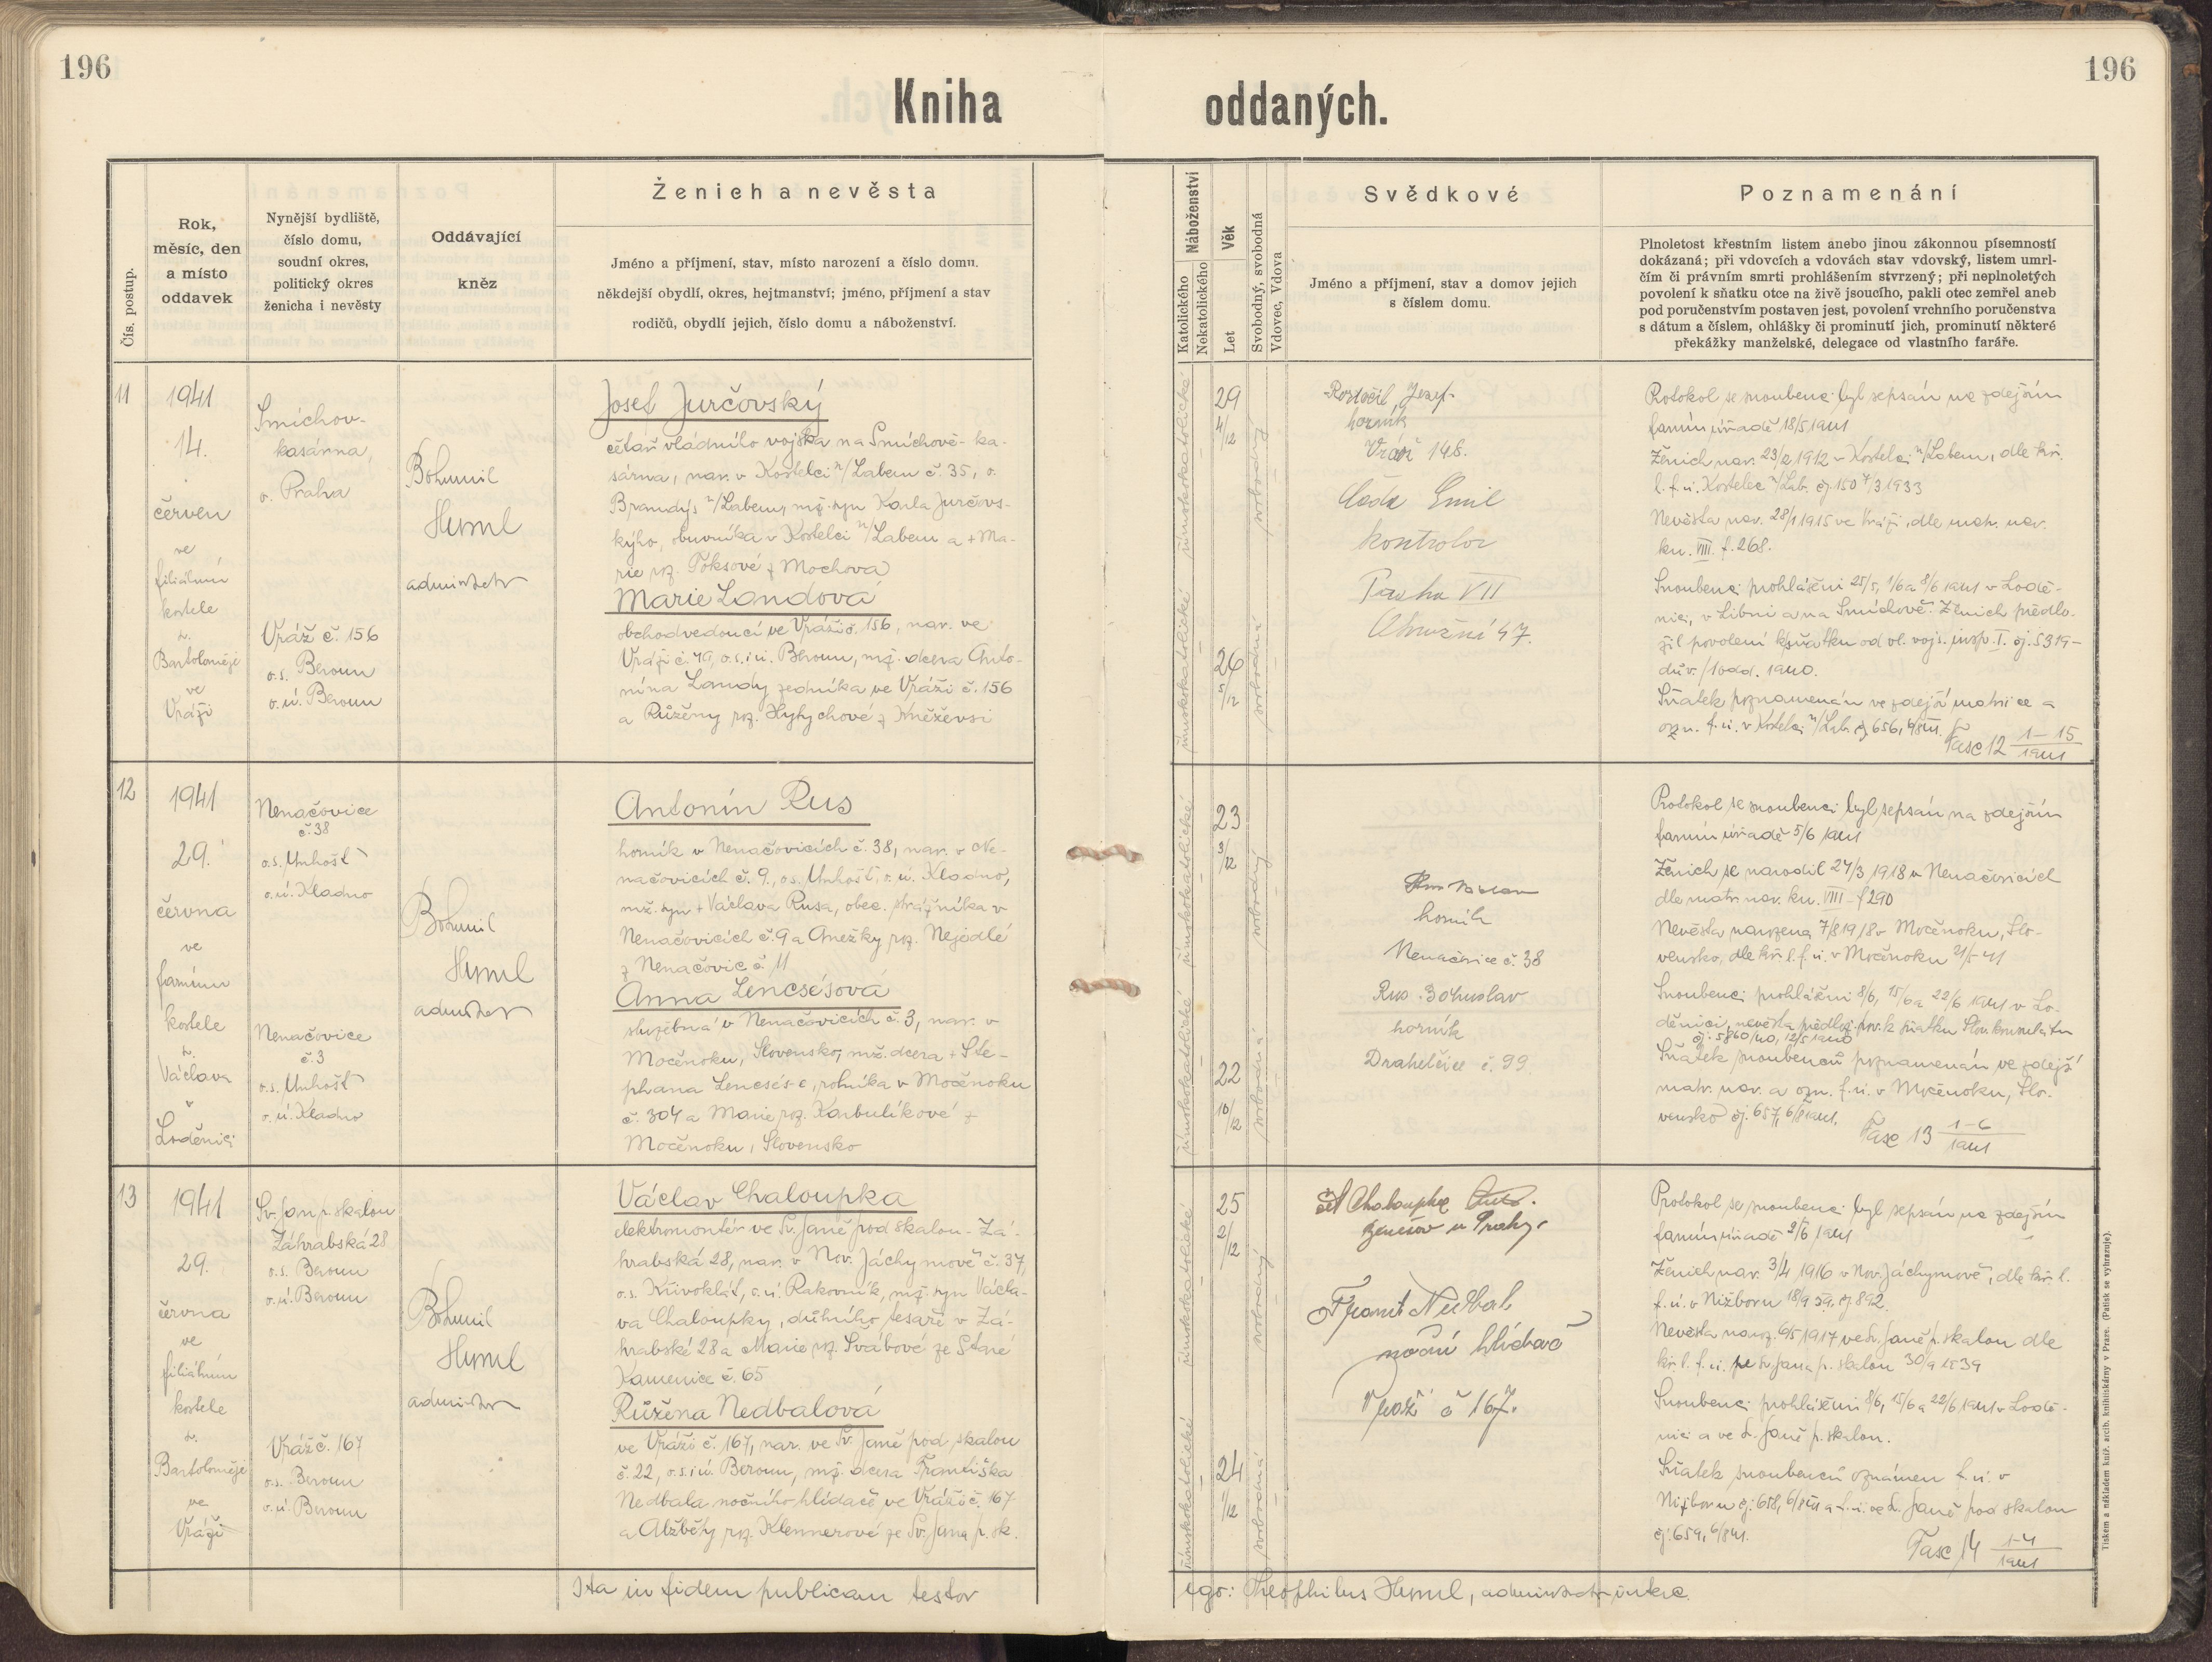 196
196
Kniha oddaných.
Čís. postup.
Rok,
měsíc, den
a místo
oddavek
Nynější bydliště,
číslo domu,
soudní okres,
politický okres
ženicha i nevěsty
Oddávající
kněz
Ženich a nevěsta
Jméno a příjmení, stav, místo narození a číslo domu.
někdejší obydlí, okres, hejtmanství; jméno, příjmení a stav
rodičů, obydlí jejich, číslo domu a náboženství.
Náboženství
Katolického
Nekatolického
Věk
Let
Svobodný, svobodná
Vdovec, Vdova
Svědkové
Jméno a příjmení, stav a domov jejich
s číslem domu.
Poznamenání
Plnoletost křestním listem anebo jinou zákonnou písemností
dokázaná; při vdovcích a vdovách stav vdovský, listem umrl-
čím či právním smrti prohlášením stvrzený; při neplnoletých
povolení k sňatku otce na živě jsoucího, pakli otec zemřel aneb
pod poručenstvím postaven jest, povolení vrchního poručenstva
s dátum a číslem, ohlášky či prominutí jich, prominutí některé
překážky manželské, delegace od vlastního faráře.
11
1941
14.
červen
ve
filiálním
kostele
sv.
Bartoloměje
ve
Vráži
Smíchov-
kasárna,
o. Praha
Vráž č. 156
o.s. Beroun
o.ú. Beroun
Bohumil
Huml
administr
Josef Jurčovský
četař vládního vojska na Smíchově - ka-
sárna, nar. v Kostelci n/Labem č. 35, o.
Brandýs n/Labem, mž. syn Karla Jurčovs-
kýho, obuvníka v Kostelci n/Labem a + Ma-
rie roz. Foksové z Mochova
Marie Landová
obchodvedoucí ve Vráži č. 156, nar. ve
Vráži č. 49, o.s. i ú. Beroun, mž. dcera Anto-
nína Landy zedníka ve Vráži č. 156
a Růženy roz. Hylychové z Kněževsi
římskokatolické
římskokatolické
29
4/12
26
5/12
svobodný
svobodná
Roztočil Josef
horník
Vráž 148.
Emil
kontrolor
Praha VII
47.
Protokol se snoubenci byl sepsán na zdejším
farním úřadě 18/5 1941
Ženich nar. 23/2 1912 v Kostelci n/Labem, dle kř.
l. f. ú. Kostelec n/Lab. čj. 150 7/3 1933
Nevěsta nar. 28/1 1915 ve Vráži, dle matr. nar.
kn. VIII. f. 268.
Snoubenci prohlášeni 25/5, 1/6 a 8/6 1941 v Lodě-
nici, v Libni a na Smíchově. Ženich předlo-
žil povolení k sňatku od vl. vojs. insp. I. čj. 5319-
dův./1 odd. 1940.
Sňatek poznamenán ve zdejší matrice a
ozn. f. ú. v Kostelci n/Lab. čj. 656, 6/8 41.
Fasc 12 1-15/1941
12
1941
29.
června
ve
farním
kostele
sv.
Václava
v
Loděnici
Nenačovice
č. 38
o.s. Unhošť
o.ú. Kladno
Nenačovice
č. 3
o.s. Unhošť
o.ú. Kladno
Bohumil
Huml
administr
Antonín Rus
horník v Nenačovicích č. 38, nar. v Ne-
načovicích č. 9., o.s. Unhošť, o. ú. Kladno,
mž. syn + Václava Rusa, obec. strážníka v
Nenačovicích č. 9 a Anežky roz. Nejedlé
z Nenačovic č. 11
Anna Lencsésová
služebná v Nenačovicích č. 3, nar. v
Močěnoku, Slovensko, mž. dcera + Ste-
phana Lencsés-e, rolníka v Močěnoku
č. 304 a Marie roz. Karbulíkové z
Močěnoku, Slovensko
římskokatolické
římskokatolické
23
3/12
22
10/12
svobodný
svobodná
Rus Václav
horník
Nenačovice č. 38
Rus Bohuslav
horník
Drahelčice č. 99.
Protokol se snoubenci byl sepsán na zdejším
farním úřadě 5/6 1941
Ženich se narodil 27/3 1918 v Nenačovicích
dle matr. nar. kn. VIII - f 290
Nevěsta narozena 7/8 1918 v Močěnoku, Slo-
vensko, dle kř. l. f. ú. v Močěnoku 21/5 41
Snoubenci prohlášeni 8/6, 15/6 a 22/6 1941 v Lo-
děnici, nevěsta předlož. pov. k sňatku Slov. konsulátu
čj. 5860/40, 12/5 1940
Sňatek snoubenců poznamenán ve zdejší
matr. nar. a ozn. f. ú. v Močěnoku, Slo-
vensko čj. 657, 6/8 1941.
Fasc 13 1-6/1941
13
1941
29.
června
ve
filiálním
kostele
sv.
Bartoloměje
ve
Vráži
Sv. Jan p. skalou
Záhrabská 28
o.s. Beroun
o.ú. Beroun
Vráž č. 167
o.s. Beroun
o.ú. Beroun
Bohumil
Huml
administr
Václav Chaloupka
elektromontér ve Sv. Janě pod skalou - Zá-
hrabská 28, nar. v Nov. Jáchymově č. 37,
o.s. Křivoklát, o. ú. Rakovník, mž. syn Václa-
va Chaloupky, důlního tesaře v Zá-
hrabské 28 a Marie roz. Švábové ze Staré
Kamenice č. 65
Růžena Nedbalová
ve Vráži č. 167, nar. ve Sv. Janě pod skalou
č. 22, o.s. i ú. Beroun, mž. dcera Františka
Nedbala nočního hlídače ve Vráži č. 167
a Alžběty roz. Klennerové ze Sv. Jana p. sk.
římskokatolické
římskokatolické
25
2/12
24
1/12
svobodný
svobodná
Chaloupka
u Prahy.
Frant Nedbal
noční hlídač
Vráž č 167.
Protokol se snoubenci byl sepsán na zdejším
farním úřadě 2/6 1941
Ženich nar. 3/4 1916 v Nov. Jáchymově, dle kř. l.
f. ú. v Nižboru 18/9 39. čj 892.
Nevěsta naroz. 6/5 1917 ve Sv. Janě p. skalou dle
kř. l. f. ú. ze Sv. Jana p. skalou 30/9 1939
Snoubenci prohlášeni 8/6, 15/6 a 22/6 1941 v Lodě-
nici a ve Sv. Janě p. skalou.
Sňatek snoubenců oznámen f. ú. v
Nižboru čj. 658, 6/8 41 a f. ú. ve Sv. Janě pod skalou
čj. 659, 6/8 41.
Fasc 14 1-4/1941
Ita in fidem publicam testor
ego: Theophilus Huml, administr interc.
Tiskem a nákladem kníž. arcib. knihtiskárny v Praze. (Patisk se vyhrazuje).